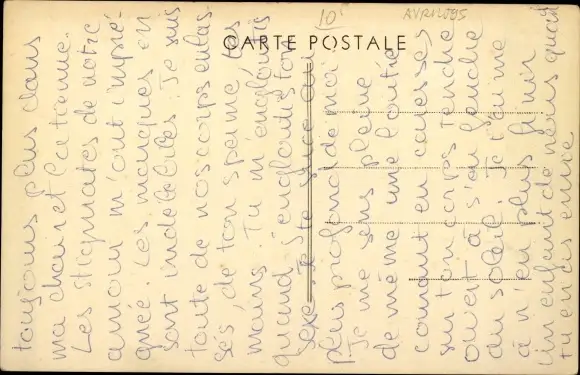 10F
AVRIL 1995
CARTE POSTALE
toujours plus dans
ma chair et la tienne.
Les stigmates de notre
amour m'ont impré-
gnée. Les marques en
sont indélébiles. Je suis
toute de nos corps enlas-
sés, de ton sperme, tes
mains. Tu m'engloutis
quand j'engloutis ton
sexe. Je te suce au
plus profond de moi
Je me sens pleine
de même une loutre
courant en caresses
sur ton corps tendre
ouvert à s'en
du soleil. Je t'aime
à n'en plus finir
Un enfant de nous quand
tu en as envie